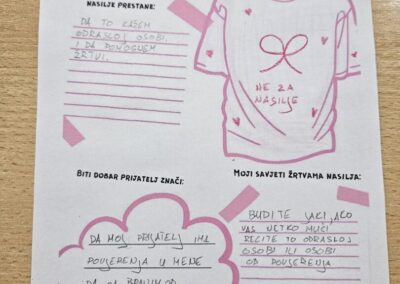 NASILJE PRESTANE:
DA TO KAŽEM
ODRASLOJ OSOBI
I DA POMOGNEM
ŽRTVI.
NE ZA
NASILJE
BITI DOBAR PRIJATELJ ZNAČI:
DA MOJ PRIJATELJ IMA
POVJERENJA U MENE
DA GA BRANIM OD
MOJI SAVJETI ŽRTVAMA NASILJA:
BUDITE JAKI, AKO
VAS NETKO MUČI
RECITE TO ODRASLOJ
OSOBI ILI OSOBI
OD POVJERENJA